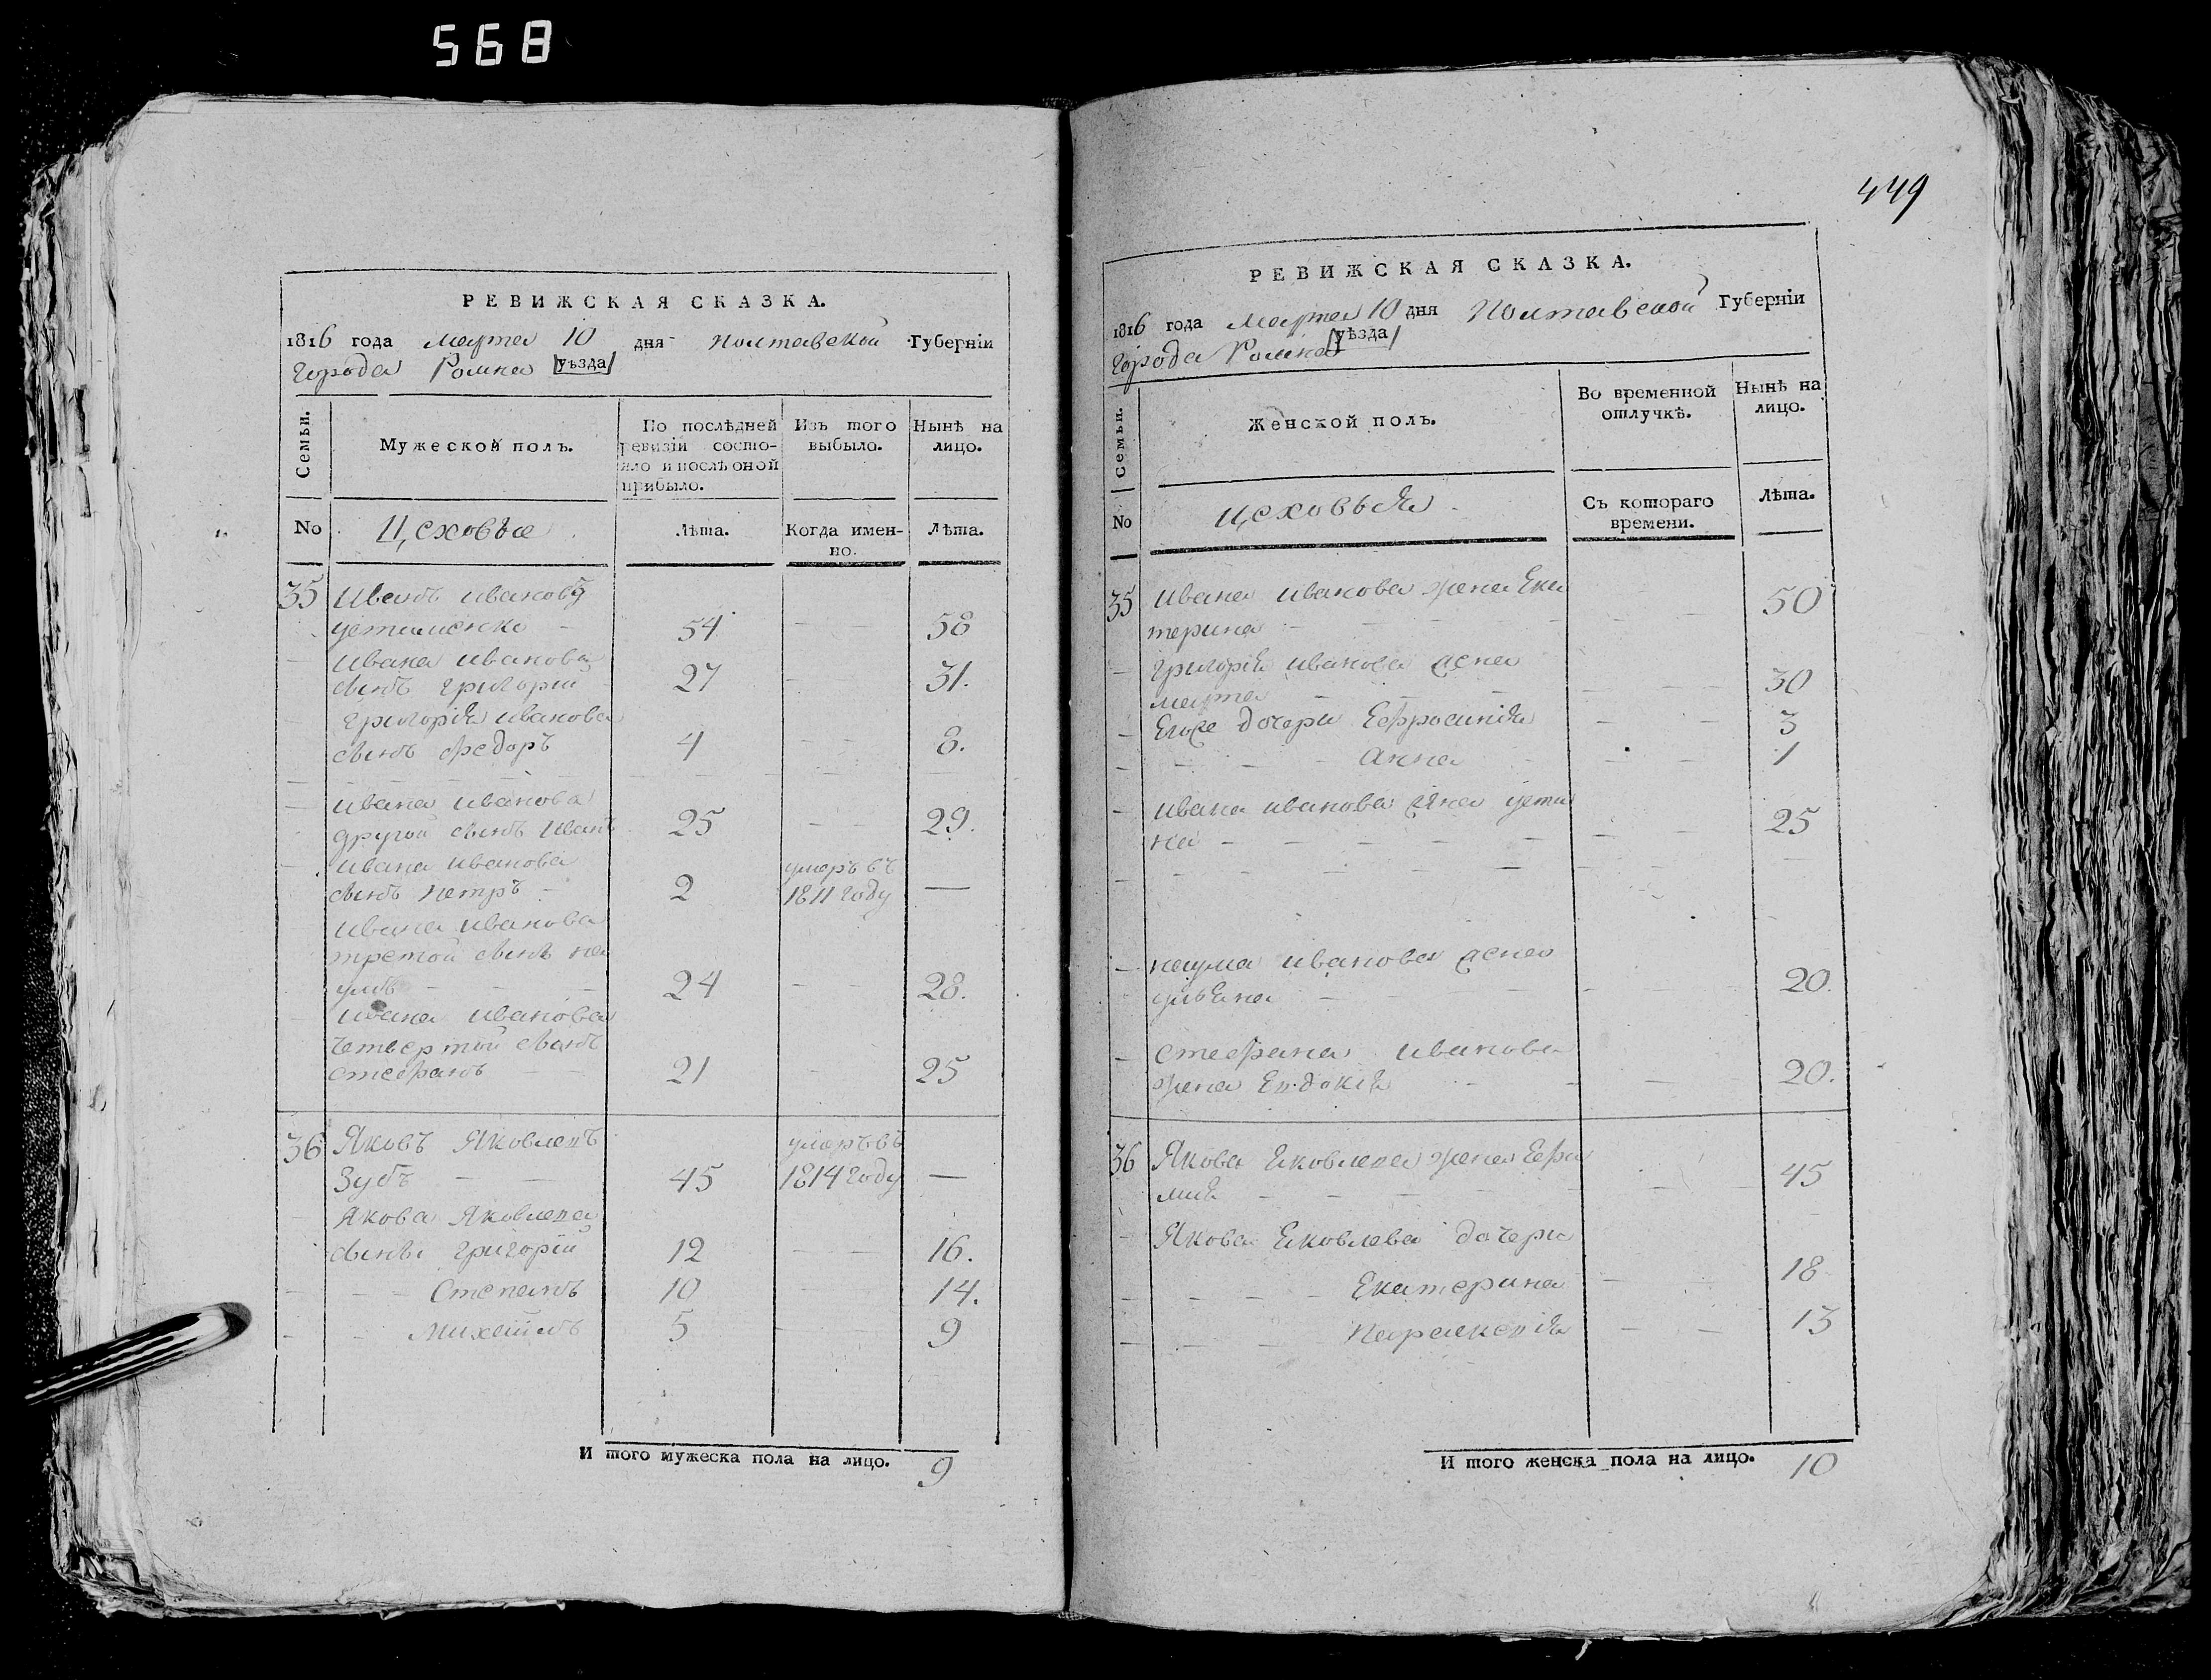 568
РЕВИЖСКАЯ СКАЗКА.
1816 года марта 10 дня Полтавской Губерніи
города Ромна уѣзда
Семьи.
Мужеской полъ.
По послѣдней ревизіи состояло и послѣ оной прибыло.
Изъ того выбыло.
Нынѣ на лицо.
No
Цеховые
Лѣта.
Когда именно.
Лѣта.
35 Иванъ Ивановъ
Устименко - 54 - - 58
- Ивана Иванова
сынъ Григорий 27 - 31.
- Григория Иванова
сынъ Федоръ 4 - - 8.
- Ивана Иванова
другой сынъ Иванъ 25 - - 29.
- Ивана Иванова умеръ въ
сынъ Петръ - 2 1811 году —
Ивана Иванова
третой сынъ На
умъ - - - 24 - - 28.
- Ивана Иванова
четвертой сынъ
Стефанъ - - 21 - 25
36 Яковъ Яковлевъ умеръ въ
Зубъ - - 45 1814 году —
- Якова Яковлева
сынъ Григорій 12 - - 16.
- - - Степанъ 10 - 14.
- - Михайлъ 5 - 9
И того мужеска пола на лицо. 9
449
РЕВИЖСКАЯ СКАЗКА.
1816 года Марта 10 дня Полтавской Губерніи
города Ромна уѣзда
Семьи.
Женской полъ.
Во временной отлучкѣ.
Нынѣ на лицо.
No
Цеховыя
Съ котораго времени.
Лѣта.
35 Ивана Иванова жена Ека
терина - - - 50
- Григорія Иванова жена
марта - - - 30
- Егоже дочери Ефросинія - - 3
- - - - Анна - - 1
- Ивана Иванова жена усти
на - - - - - 25
- Наума Иванова жена
ульяна - - - 20.
- Стефана Иванова
жена Евдокія - - 20.
36 Якова Яковлева жена Ефи
мія - - - - 45
- Якова Яковлева дочери
- - - - Екатерина - - 18
- - - Параскевія - - 13
И того женска пола на лицо. 10